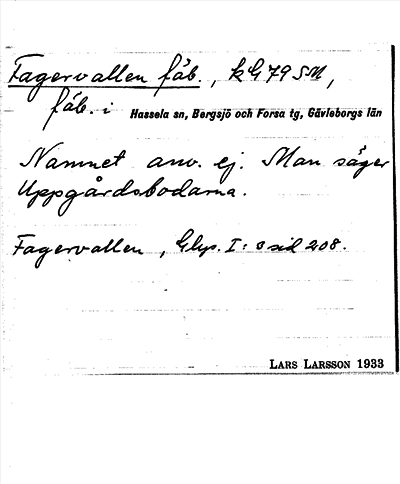 Fagervallen fäb., kG 79 SM,
fäb. i Hassela sn, Bergsjö och Forsa tg, Gävleborgs län
Namnet anv. ej. Man säger
Uppgårdsbodarna.
Fagervallen, Glsp. I: 3 sid 208.
LARS LARSSON 1933